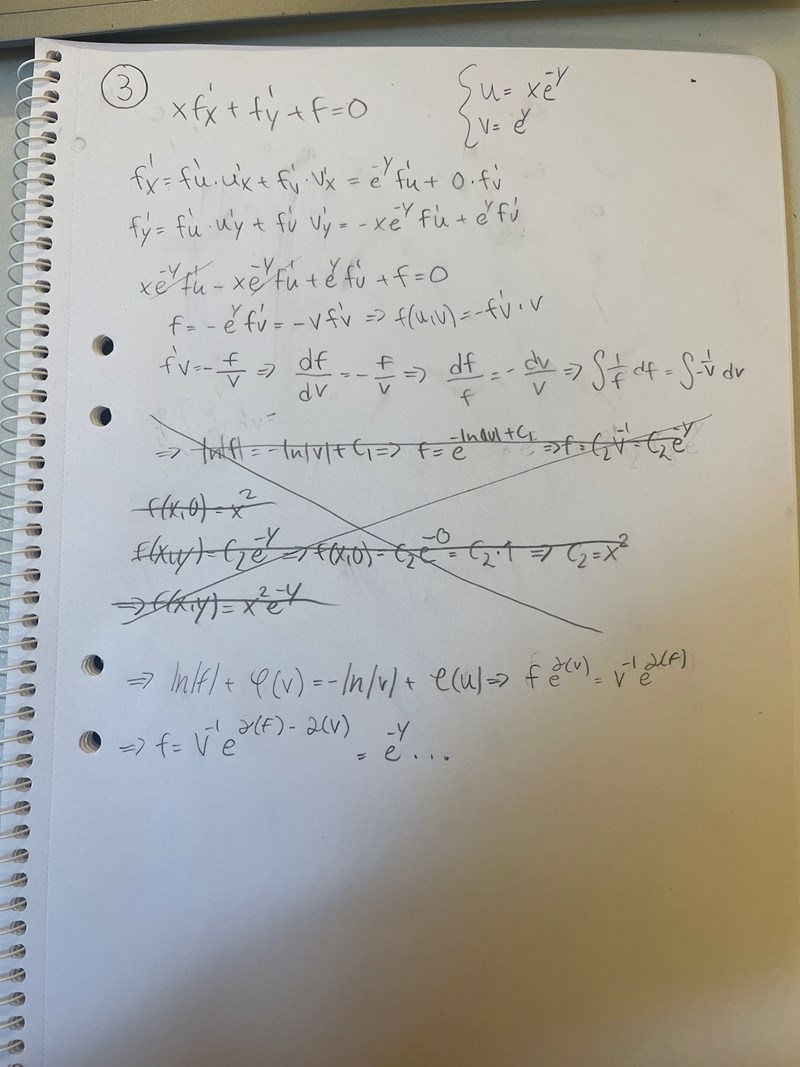 ③ xf'x + f'y + f = 0 { u = xe^-y
v = e^y
f'x = f'u · u'x + f'v · v'x = e^-y f'u + 0 · f'v
f'y = f'u · u'y + f'v v'y = -xe^-y f'u + e^y f'v
xe^-y f'u - xe^-y f'u + e^y f'v + f = 0
f = -e^y f'v = -v f'v ⇒ f(u,v) = -f'v · v
f'v = -f/v ⇒ df/dv = -f/v ⇒ df/f = -dv/v ⇒ ∫ 1/f df = ∫ -1/v dv
=
⇒ ln|f| = -ln|v| + C₁ ⇒ f = e^-ln|v|+C₁ ⇒ f = C₂v^-1 = C₂e^-y
f(x,0) = x^2
f(x,y) = C₂e^-y ⇒ f(x,0) = C₂e^-0 = C₂·1 ⇒ C₂ = x^2
⇒ f(x,y) = x^2 e^-y
⇒ ln|f| + φ(v) = -ln|v| +
⇒ f = v^-1 e = e^-y ...